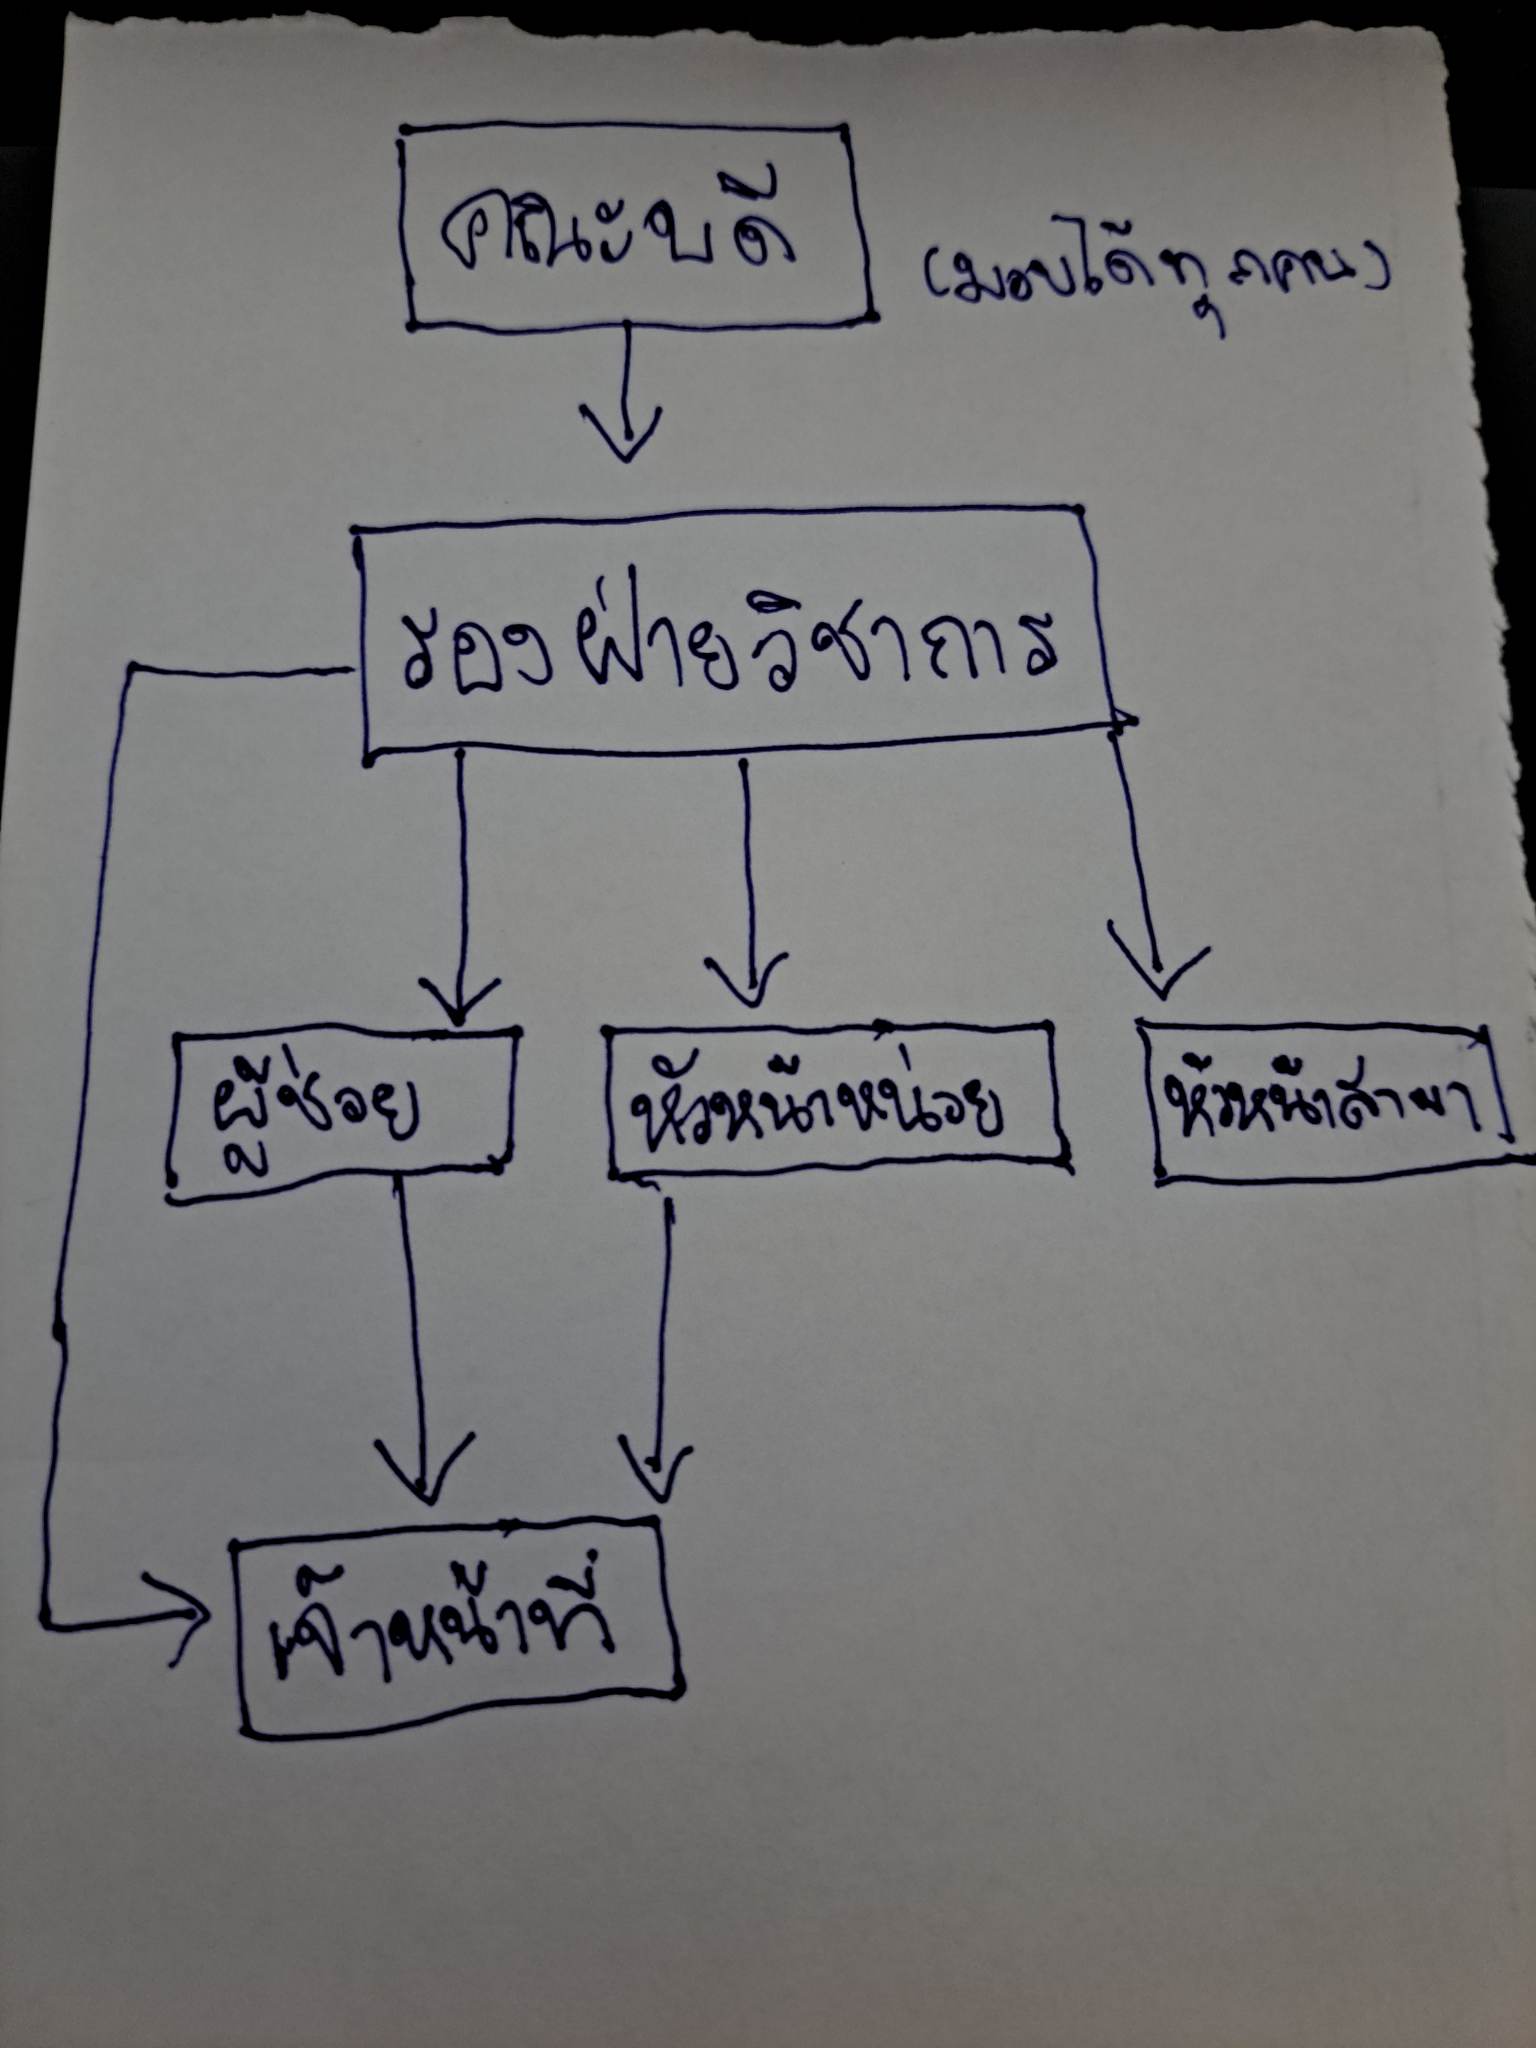 คณะบดี
(มอบได้ทุกคน)
รองฝ่ายวิชาการ
ผู้ช่วย
หัวหน้าหน่วย
หัวหน้าสาขา
เจ้าหน้าที่